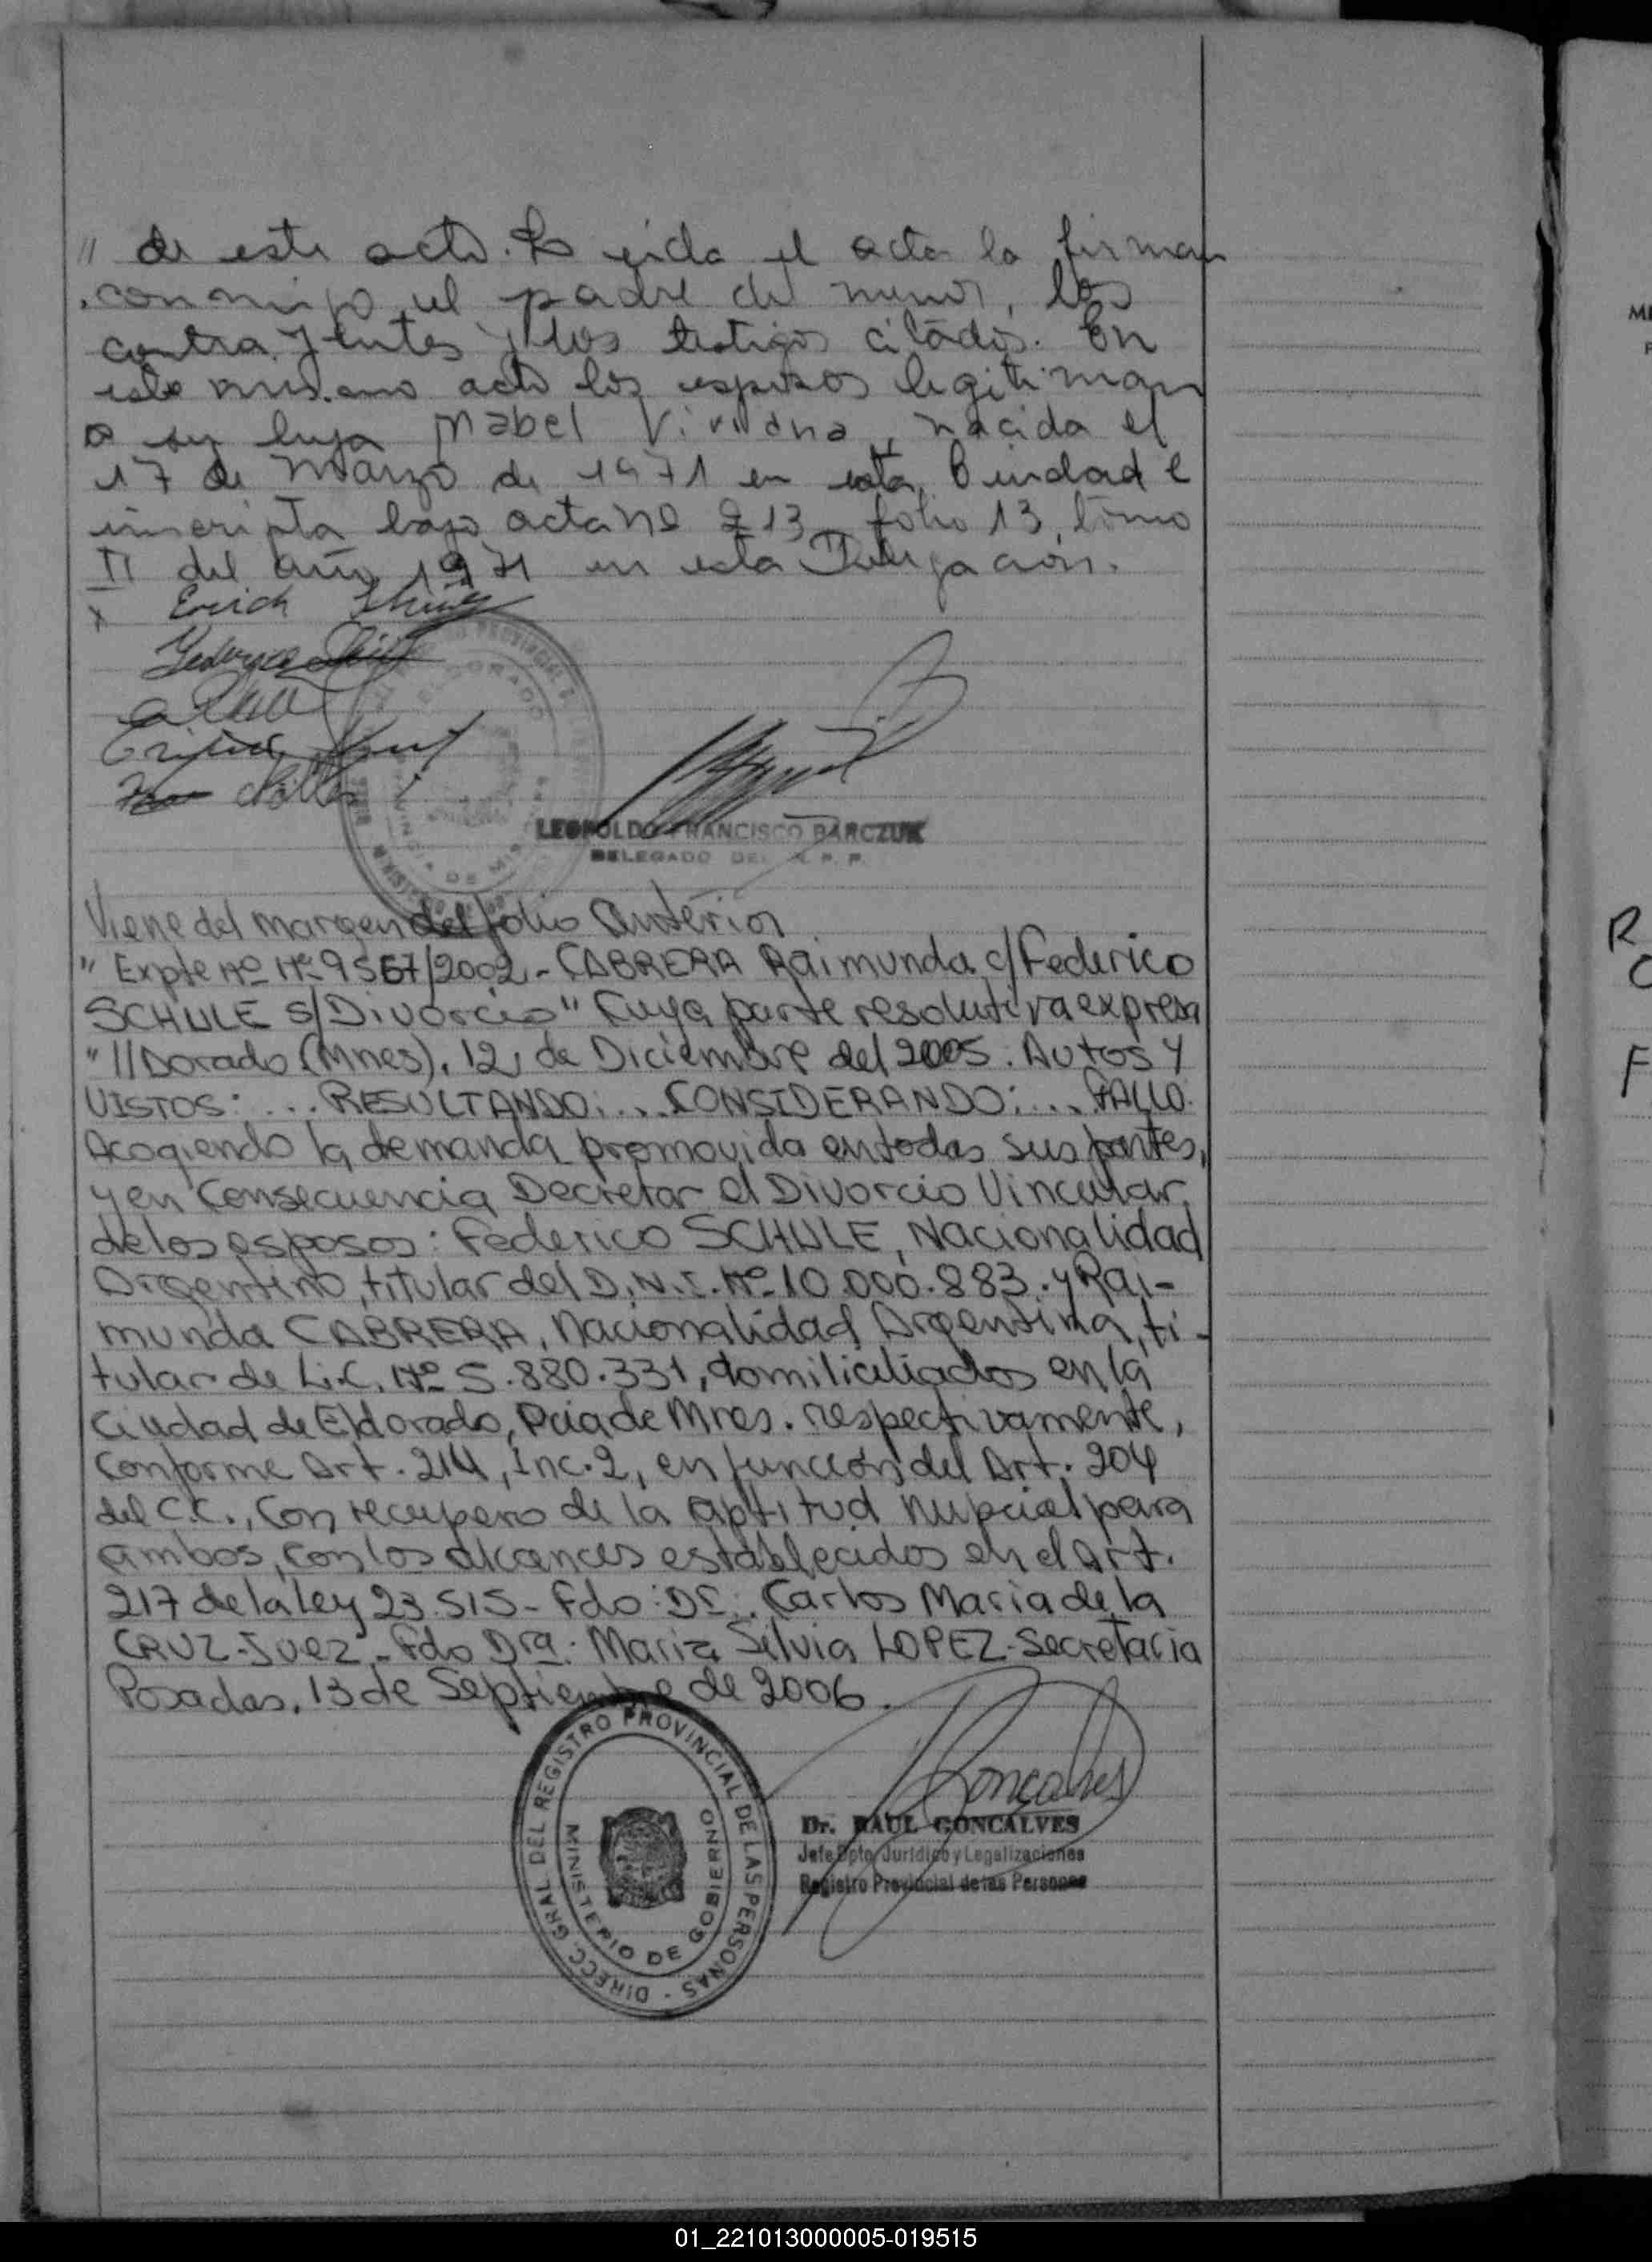 " de este acto. Leida el acta la firman
conmigo el padre del menor, los
contrayentes y los testigos citados. En
este mismo acto los esposos legitiman
a su hija Mabel Viviana, nacida el
17 de Marzo de 1971 en esta Ciudad e
inscripta bajo acta Nº 213 folio 13 tomo
II del año 1971 en esta Delegación.
x Erich
Federico
LEOPOLDO FRANCISCO BARCZUK
DELEGADO DEL R. P. P.
Viene del margen del folio anterior
" Expte Nº Nº 9567/2002 - CABRERA Raimunda c/ Federico
SCHULE s/Divorcio" Cuya parte resolutiva expresa
"//Dorado (Mnes), 12, de Diciembre del 2005. Autos y
VISTOS: ... RESULTANDO: ... CONSIDERANDO: ... FALLO:
Acogiendo la demanda promovida en todas sus partes,
y en Consecuencia Decretar el Divorcio Vincular
de los esposos: Federico SCHULE, Nacionalidad
Argentino, titular del D.N.I. Nº 10.000.883. y Rai-
munda CABRERA, Nacionalidad Argentina, ti-
tular de L.C. Nº 5.880.331, domiciliados en la
Ciudad de Eldorado, Pcia de Mnes. respectivamente,
Conforme Art. 214, Inc. 2, en función del Art. 204
del C.C., Con recupero de la aptitud nupcial para
ambos, con los alcances establecidos en el Art.
217 de la ley 23.515 - Fdo: Dr. Carlos Maria de la
CRUZ - Juez - Fdo Dra: Maria Silvia LOPEZ - Secretaria
Posadas, 13 de Septiembre de 2006.
DIRECC. GRAL DEL REGISTRO PROVINCIAL DE LAS PERSONAS -
MINISTERIO DE GOBIERNO
Goncalves
Dr. RAUL GONCALVES
Jefe Dpto. Jurídico y Legalizaciones
Registro Provincial de las Personas
01_221013000005-019515